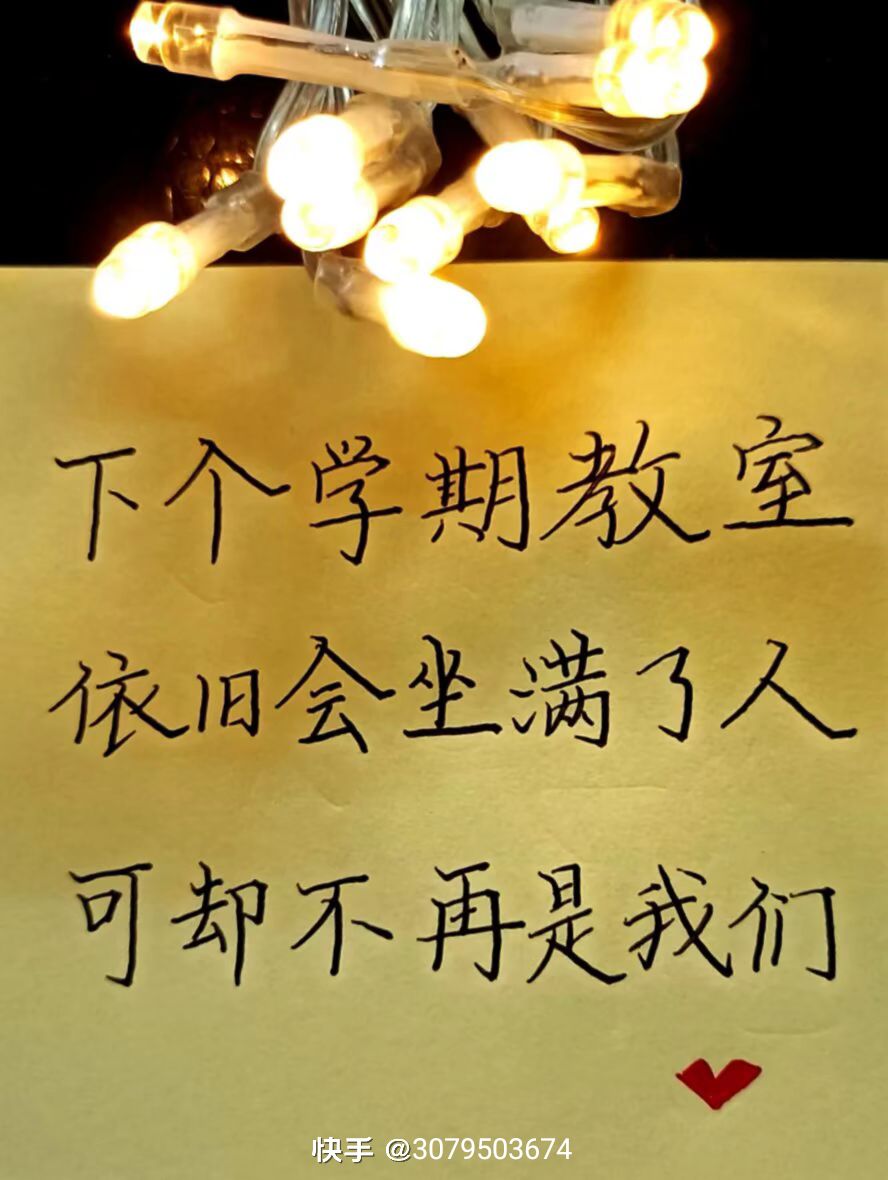 下个学期教室
依旧会坐满了人
可却不再是我们
快手 @3079503674